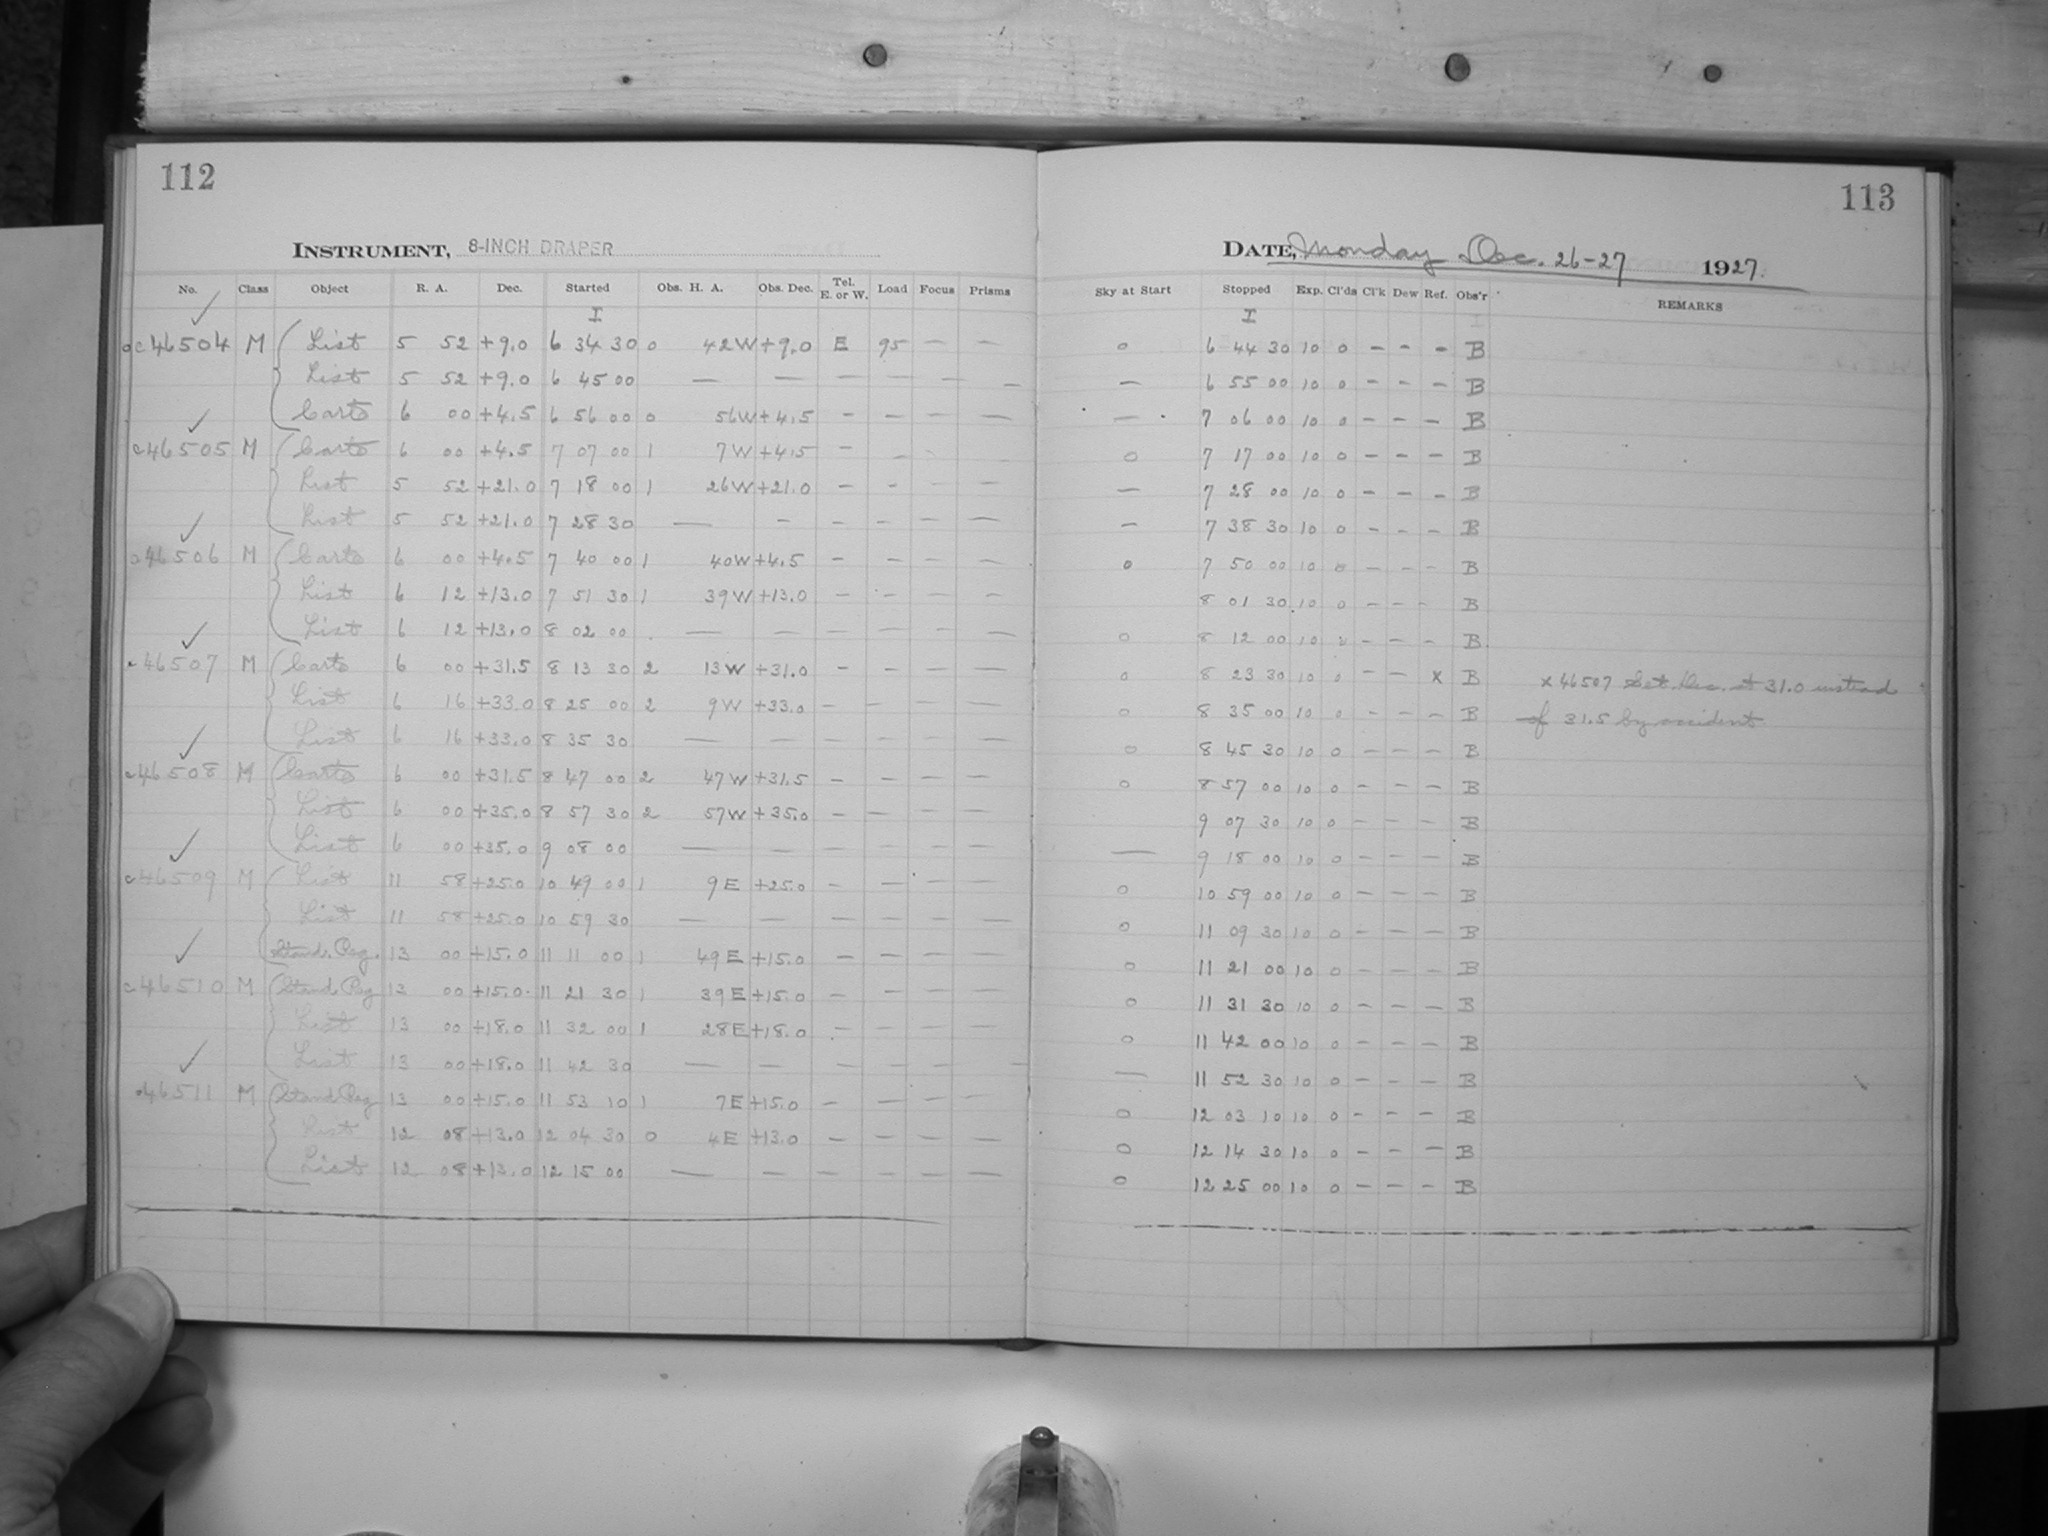 112
INSTRUMENT, 8-INCH DRAPER
No. Class Object R. A. Dec. Started Obs. H. A. Obs. Dec. Tel. E. or W. Load Focus Prisms
I
c46504 M List 5 52 +9.0 6 34 30 0 42W +9.0 E 95 — —
List 5 52 +9.0 6 45 00 — — — — — —
Carto 6 00 +4.5 6 56 00 0 56W +4.5 — — — —
c46505 M Carto 6 00 +4.5 7 07 00 1 7W +4.5 — — — —
List 5 52 +21.0 7 18 00 1 26W +21.0 — — — —
List 5 52 +21.0 7 28 30 — — — — — —
c46506 M Carto 6 00 +4.5 7 40 00 1 40W +4.5 — — — —
List 6 12 +13.0 7 51 30 1 39W +13.0 — — — —
List 6 12 +13.0 8 02 00 — — — — — —
c46507 M Carto 6 00 +31.5 8 13 30 2 13W +31.0 — — — —
List 6 16 +33.0 8 25 00 2 9W +33.0 — — — —
List 6 16 +33.0 8 35 30 — — — — — —
c46508 M Carto 6 00 +31.5 8 47 00 2 47W +31.5 — — — —
List 6 00 +35.0 8 57 30 2 57W +35.0 — — — —
List 6 00 +35.0 9 08 00 — — — — — —
c46509 M List 11 58 +25.0 10 49 00 1 9E +25.0 — — — —
List 11 58 +25.0 10 59 30 — — — — — —
Stand. Reg. 13 00 +15.0 11 11 00 1 49E +15.0 — — — —
c46510 M Stand. Reg 13 00 +15.0 11 21 30 1 39E +15.0 — — — —
List 13 00 +18.0 11 32 00 1 28E +18.0 — — — —
List 13 00 +18.0 11 42 30 — — — — — —
c46511 M Stand Reg 13 00 +15.0 11 53 10 1 7E +15.0 — — — —
List 12 08 +13.0 12 04 30 0 4E +13.0 — — — —
List 12 08 +13.0 12 15 00 — — — — — —
113
DATE, Monday Dec. 26-27 1927.
Sky at Start Stopped Exp. Cl'ds Cl'k Dew Ref. Obs'r REMARKS
I
0 6 44 30 10 0 — — — B
— 6 55 00 10 0 — — — B
— 7 06 00 10 0 — — — B
0 7 17 00 10 0 — — — B
— 7 28 00 10 0 — — — B
— 7 38 30 10 0 — — — B
0 7 50 00 10 0 — — — B
8 01 30 10 0 — — — B
0 8 12 00 10 0 — — — B
0 8 23 30 10 0 — — x B x 46507 Set Dec. at 31.0 instead
0 8 35 00 10 0 — — — B of 31.5 by accident
0 8 45 30 10 0 — — — B
0 8 57 00 10 0 — — — B
9 07 30 10 0 — — — B
— 9 18 00 10 0 — — — B
0 10 59 00 10 0 — — — B
0 11 09 30 10 0 — — — B
0 11 21 00 10 0 — — — B
0 11 31 30 10 0 — — — B
0 11 42 00 10 0 — — — B
— 11 52 30 10 0 — — — B
0 12 03 10 10 0 — — — B
0 12 14 30 10 0 — — — B
0 12 25 00 10 0 — — — B